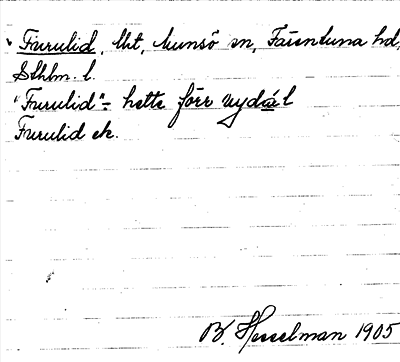 Furulid, lht, Munsö sn, Färentuna hd,
Sthlm. l.
"Furulid" - hette förr nydal
Furulid ek.
B. Hesselman 1905